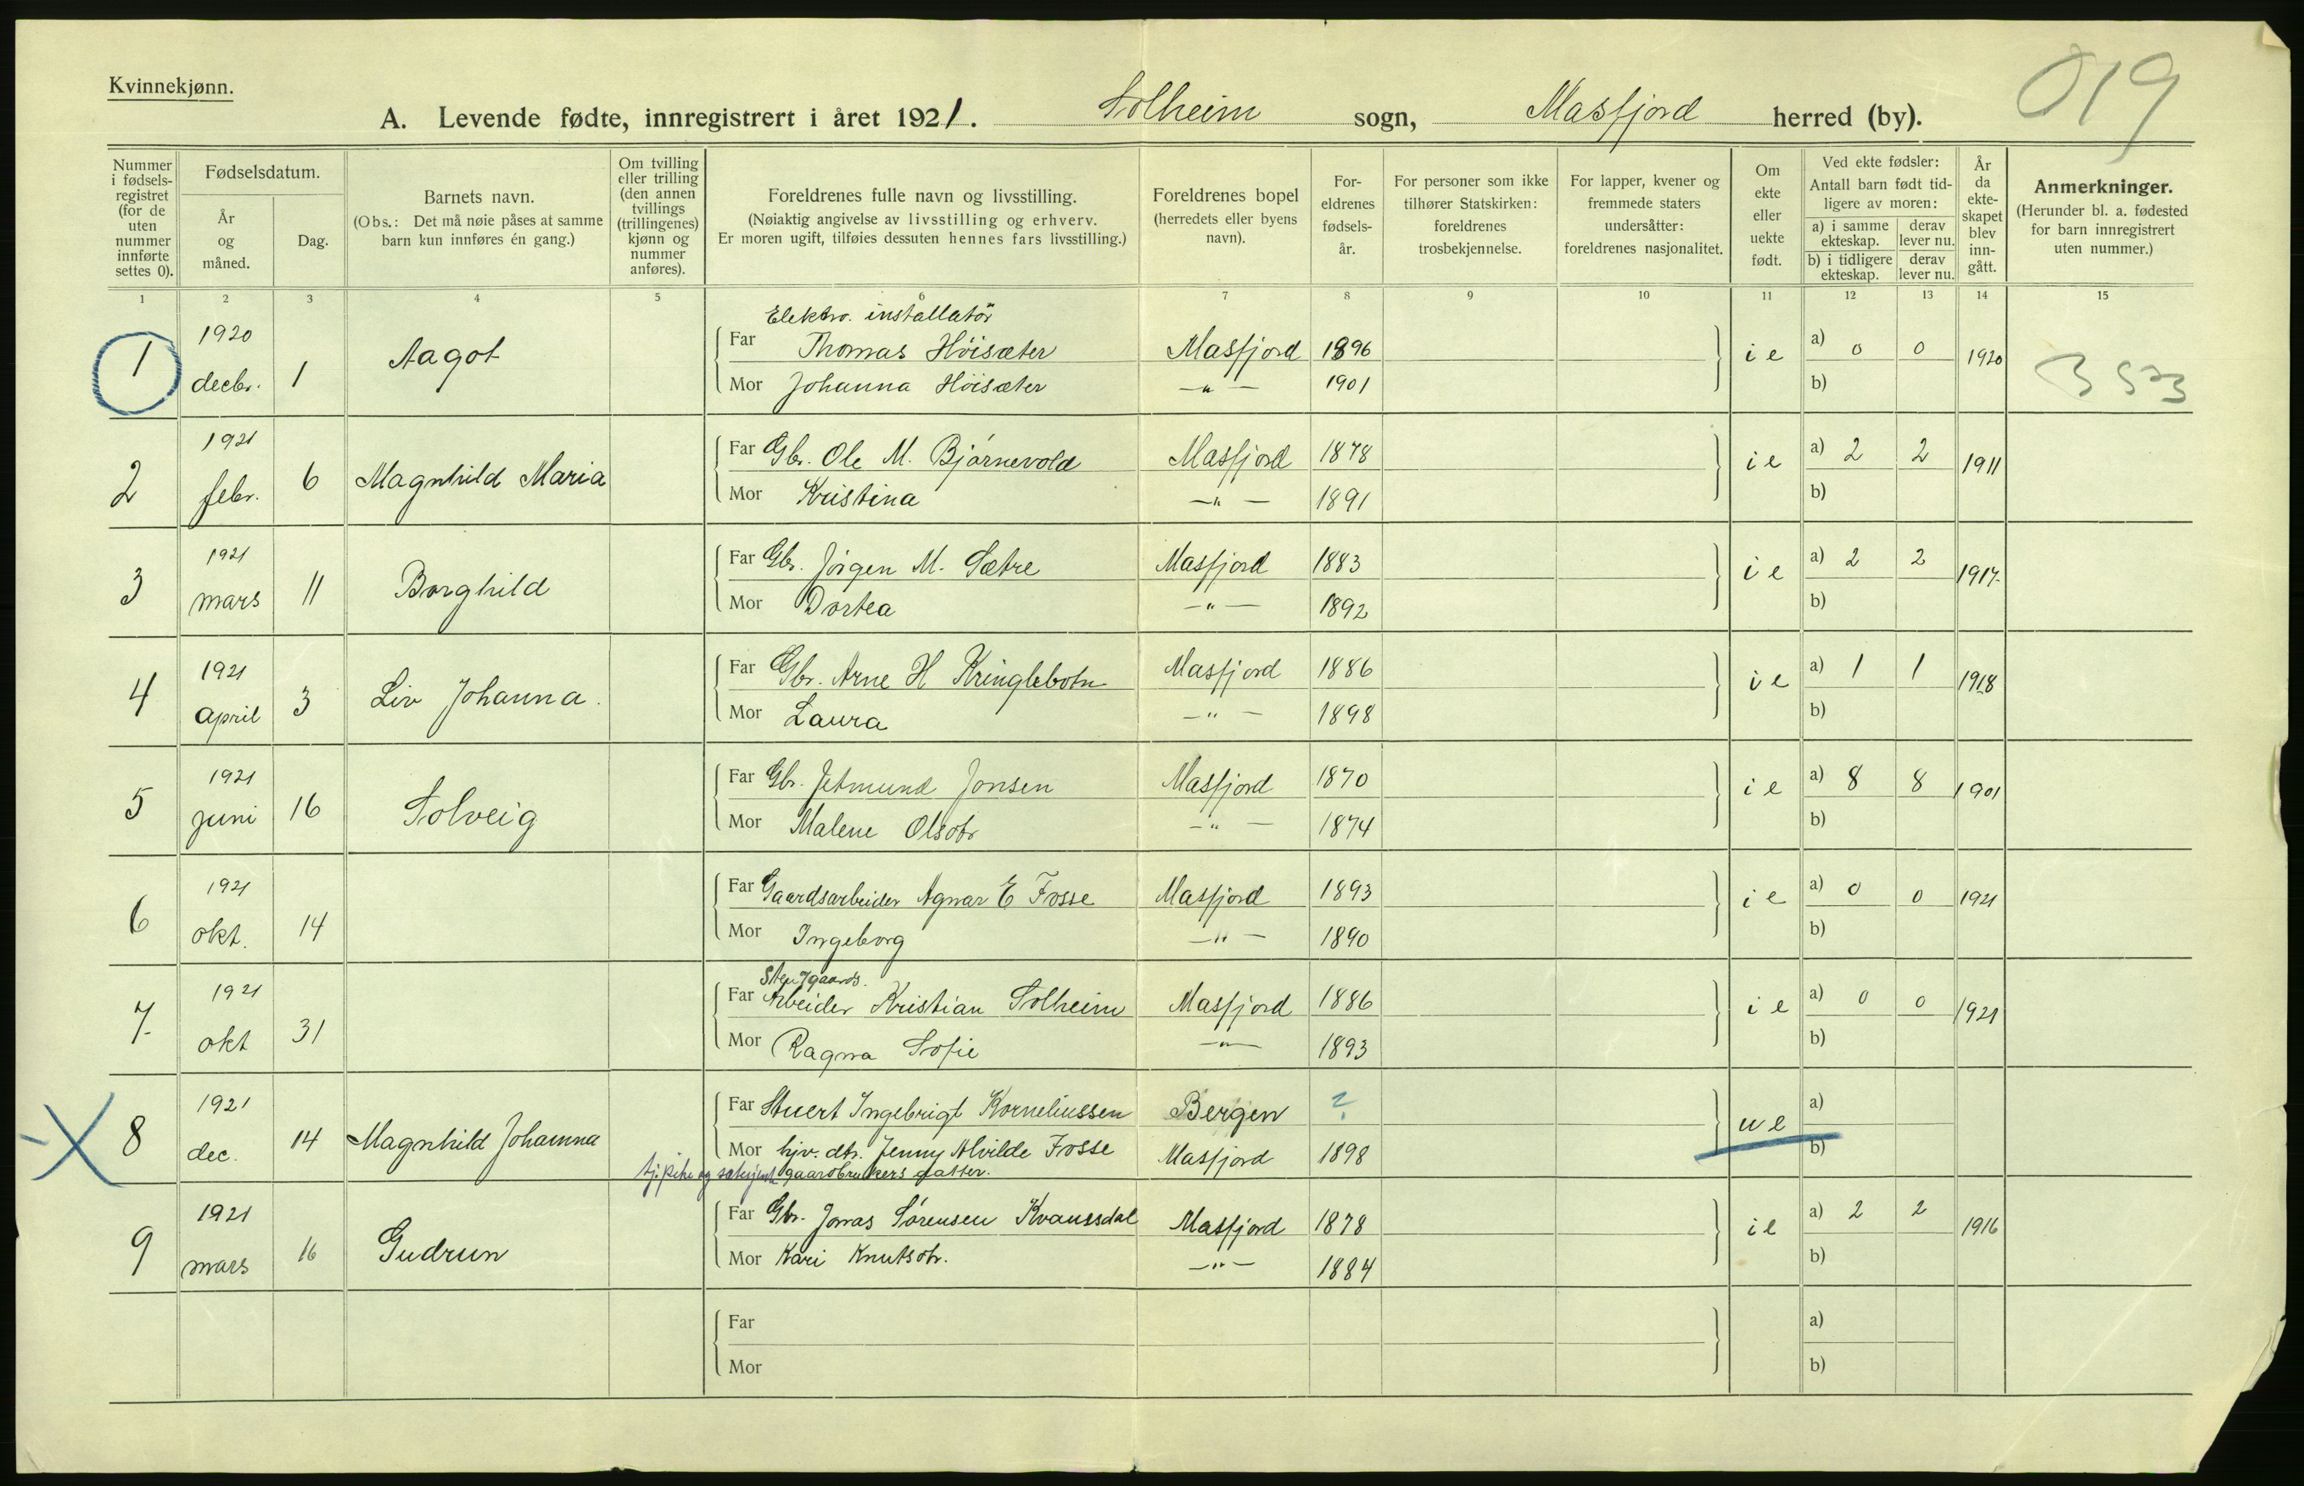 Kvinnekjønn.
019
A. Levende fødte, innregistrert i året 1921. Solheim sogn, Masfjord herred (by).
Nummer i fødsels-registret (for de uten nummer innførte settes 0).
Fødselsdatum.
År og måned.
Dag.
Barnets navn.
(Obs.: Det må nøie påses at samme barn kun innføres én gang.)
Om tvilling eller trilling (den annen tvillings (trillingenes) kjønn og nummer anføres).
Foreldrenes fulle navn og livsstilling.
(Nøiaktig angivelse av livsstilling og erhverv.
Er moren ugift, tilføies dessuten hennes fars livsstilling.)
Foreldrenes bopel
(herredets eller byens navn).
For-eldrenes fødsels-år.
For personer som ikke tilhører Statskirken: foreldrenes trosbekjennelse.
For lapper, kvener og fremmede staters undersåtter: foreldrenes nasjonalitet.
Om ekte eller uekte født.
Ved ekte fødsler:
Antall barn født tid-ligere av moren:
a) i samme ekteskap. derav lever nu.
b) i tidligere ekteskap. derav lever nu.
År da ekte-skapet blev inn-gått.
Anmerkninger.
(Herunder bl. a. fødested for barn innregistrert uten nummer.)
1 2 3 4 5 6 7 8 9 10 11 12 13 14 15
1 1920 decbr. 1 Aagot
Elektro. installatör
Far Thomas Höisæter Masfjord 1896 i e a) 0 0 1920
Mor Johanna Höisæter —"— 1901 b)
B 573
2 1921 febr. 6 Magnhild Maria
Far Gbr. Ole M. Bjørnevold Masfjord 1878 i e a) 2 2 1911
Mor Kristina —"— 1891 b)
3 1921 mars 11 Borghild
Far Gbr. Jørgen M. Sætre Masfjord 1883 i e a) 2 2 1917
Mor Dortea —"— 1892 b)
4 1921 april 3 Liv Johanna.
Far Gbr. Arne H Kringlebotn Masfjord 1886 i e a) 1 1 1918
Mor Laura —"— 1898 b)
5 1921 juni 16 Solveig
Far Gbr. Jetmund Jonsen Masfjord 1870 i e a) 8 8 1901
Mor Malene Olsdtr —"— 1874 b)
6 1921 okt. 14
Far Gaardsarbeider Agnar E Fosse Masfjord 1893 i e a) 0 0 1921
Mor Ingeborg —"— 1890 b)
7 1921 okt 31
Far Arbeider Kristian Solheim Masfjord 1886 i e a) 0 0 1921
Mor Ragna Sofie —"— 1893 b)
8 1921 dec. 14 Magnhild Johanna
Far Stuert Ingebrigt Korneliussen Bergen ? u e a)
Mor hjv. dtr. Jenny Alvilde Fosse Masfjord 1898 b)
gaardbrukers datter.
9 1921 mars 16 Gudrun
Far Gbr. Jonas Sørensen Kvamsdal Masfjord 1878 i e a) 2 2 1916
Mor Kari Knutsdtr. —"— 1884 b)
Far a)
Mor b)